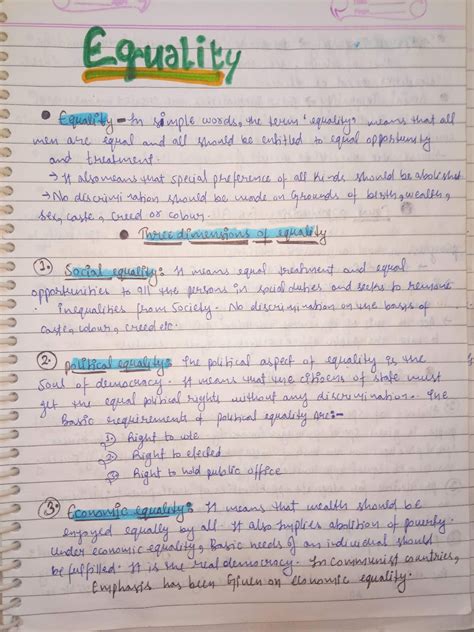 Equality
• Equality - In simple words, the term 'equality' means that all
men are equal and all should be entitled to equal opportunity
and treatment.
→ It also means that special preference of all kinds should be abolished
→ No discrimination should be made on Grounds of birth, wealth,
sex, caste, creed or colour.
• Three dimensions of equality
1. Social equality: It means equal treatment and equal
opportunities to all the persons in social duties and seeks to remove
inequalities from Society. No discrimination on the basis of
caste, colour, creed etc.
2. Political equality: The political aspect of equality is the
Soul of democracy. It means that the citizens of state must
get the equal political rights without any discrimination. The
Basic requirements of political equality are:-
① Right to vote
② Right to elected
③ Right to hold public office
3. Economic equality: It means that wealth should be
enjoyed equally by all. It also implies abolition of poverty.
under economic equality, Basic needs of an individual should
be fulfilled. It is the real democracy. In communist countries,
Emphasis has been Given on economic equality.